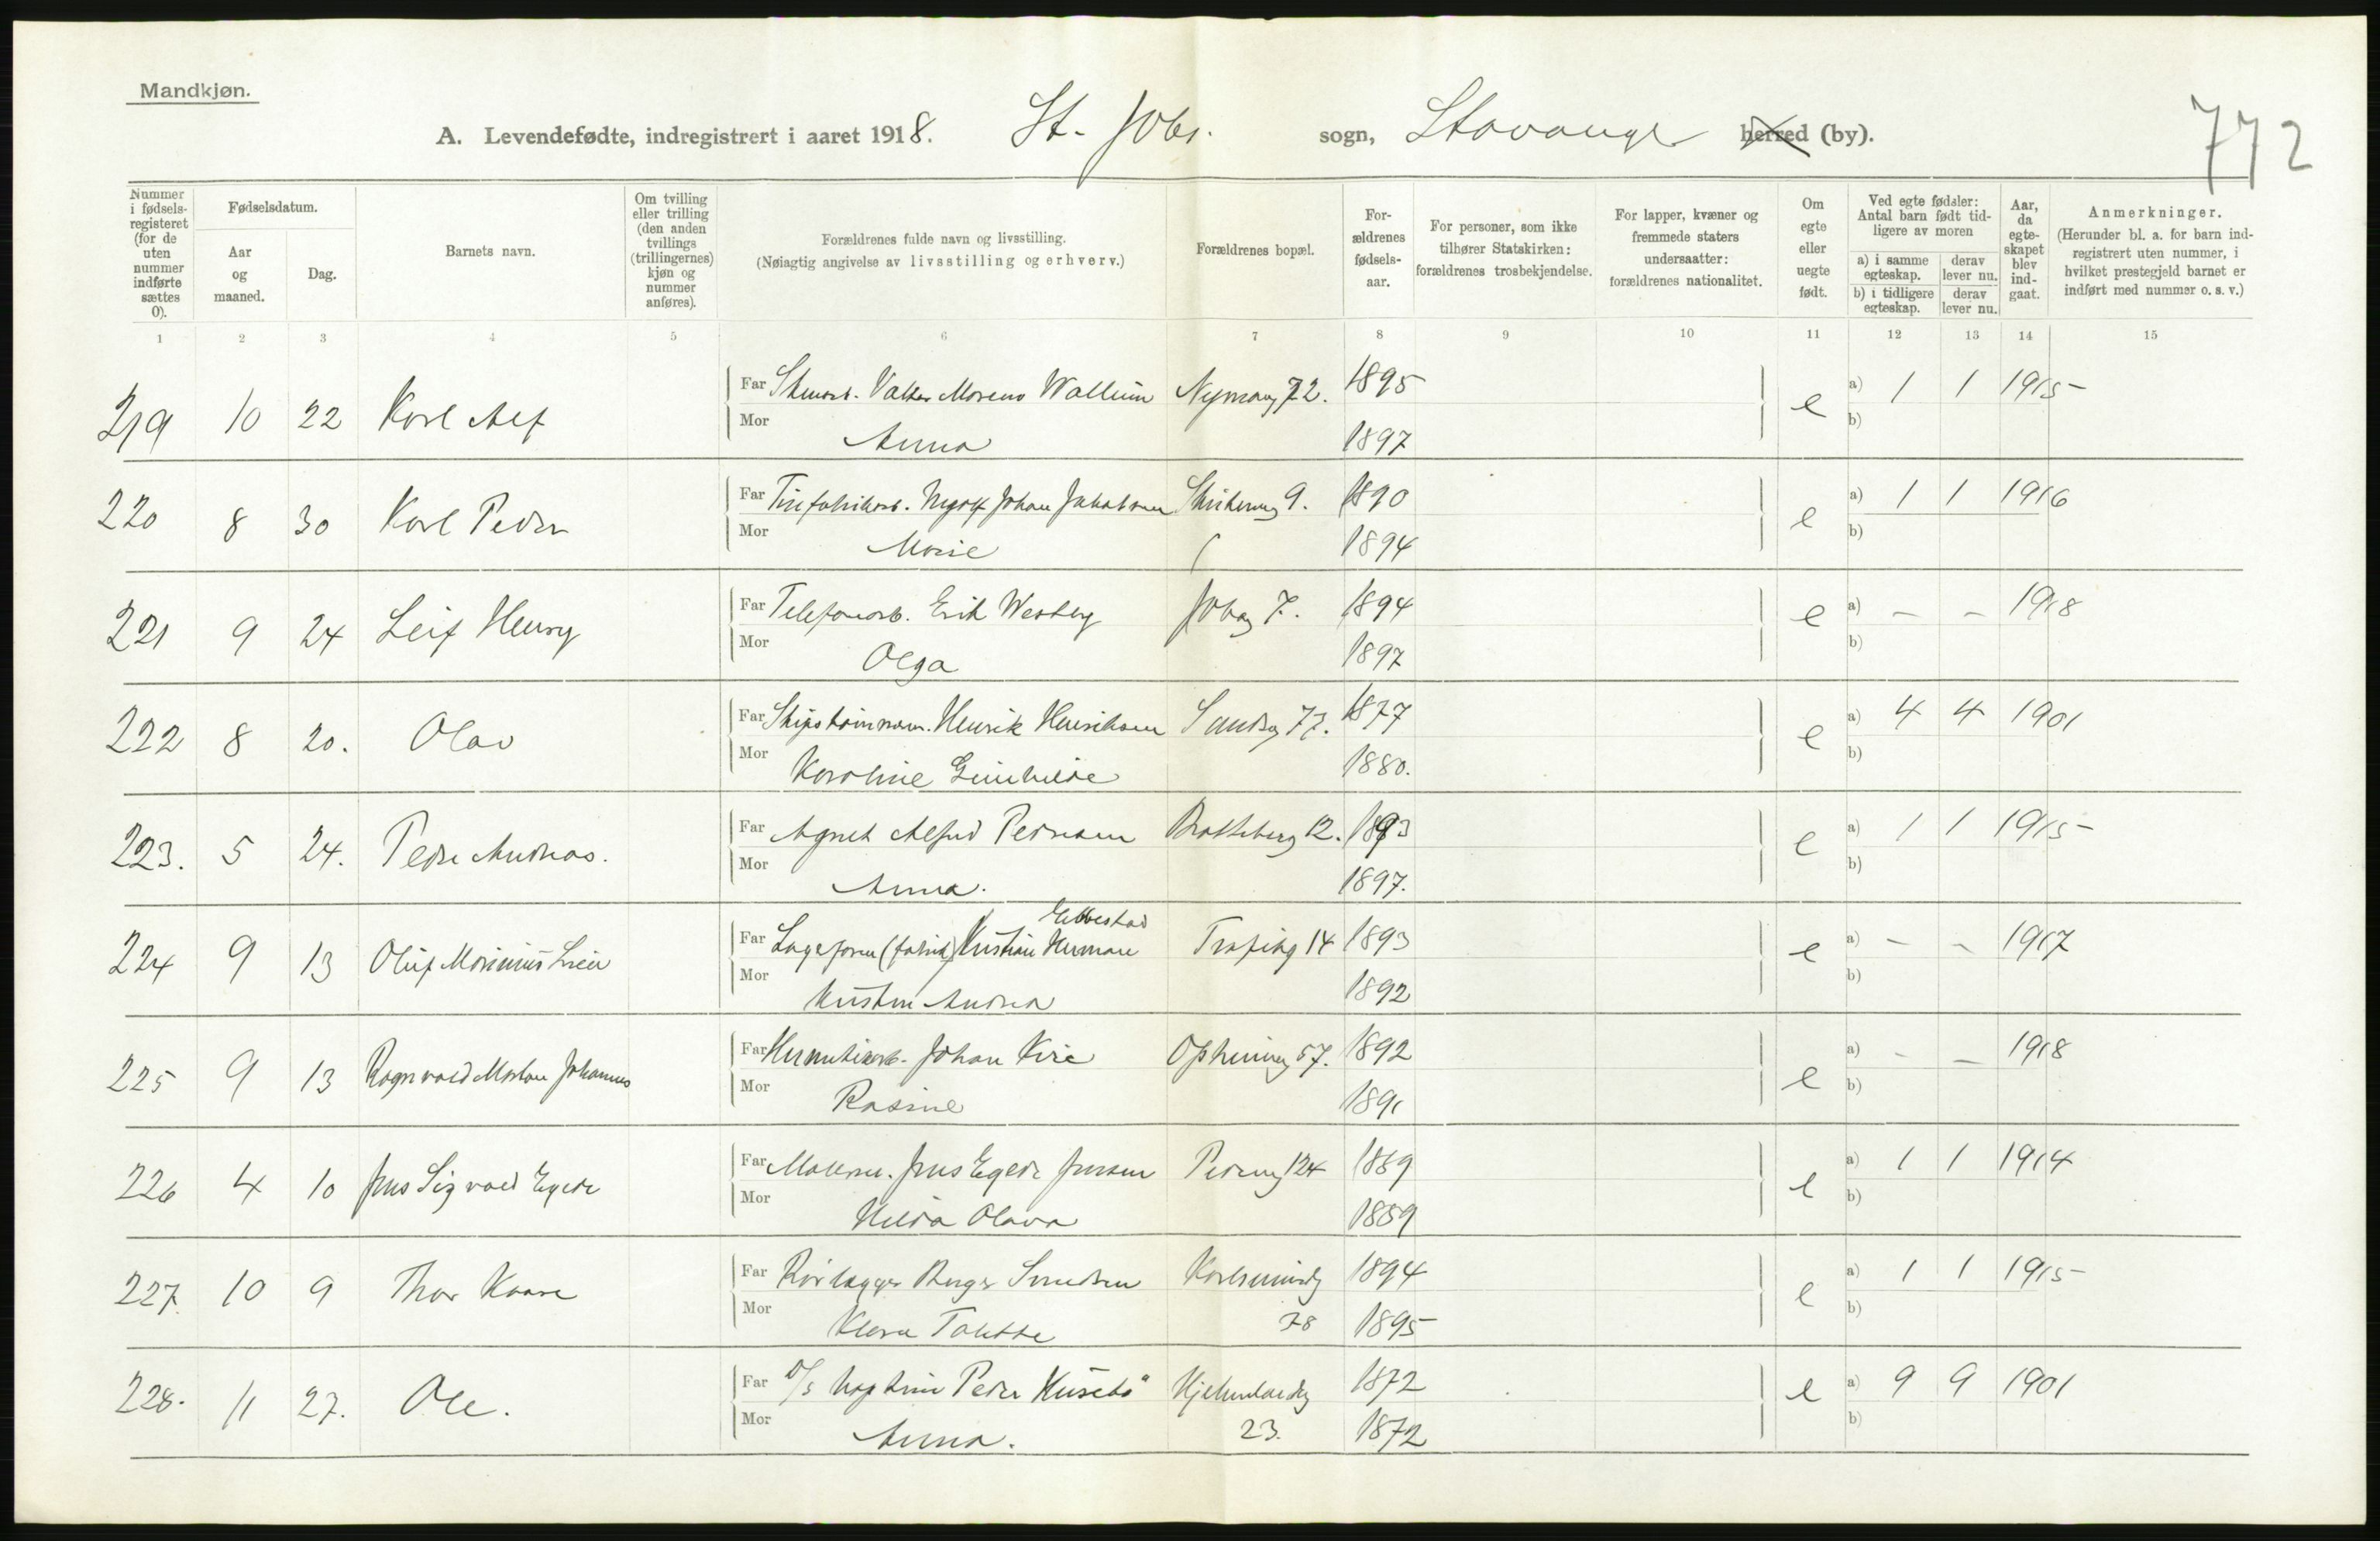 Mandkjøn.
A. Levendefødte, indregistrert i aaret 1918. St. Joh. sogn, Stavanger herred (by).
772
Nummer i fødsels-registeret (for de uten nummer indførte sættes 0).
Fødselsdatum.
Aar og maaned.
Dag.
Barnets navn.
Om tvilling eller trilling (den anden tvillings (trillingernes) kjøn og nummer anføres).
Forældrenes fulde navn og livsstilling.
(Nøiagtig angivelse av livsstilling og erhverv.)
Forældrenes bopæl.
For-ældrenes fødsels-aar.
For personer, som ikke tilhører Statskirken: forældrenes trosbekjendelse.
For lapper, kvæner og fremmede staters undersaatter: forældrenes nationalitet.
Om egte eller uegte født.
Ved egte fødsler: Antal barn født tid-ligere av moren
a) i samme egteskap.
derav lever nu.
b) i tidligere egteskap.
derav lever nu.
Aar, da egte-skapet blev ind-gaat.
Anmerkninger.
(Herunder bl. a. for barn ind-registrert uten nummer, i hvilket prestegjeld barnet er indført med nummer o. s. v.)
1 2 3 4 5 6 7 8 9 10 11 12 13 14 15
219 10 22 Karl Alf Far Valter Moreno Wallum Nymansg 72. 1895 e a) 1 1 1915
Mor Anna 1897 b)
220 8 30 Karl Peder Far Johan Jakobsen 9. 1890 e a) 1 1 1916
Mor Marie 1894 b)
221 9 24 Leif Henry Far Telefonarb. Erik Westberg Jobg 7. 1894 e a) – – 1918
Mor Olga 1897 b)
222 8 20. Olav Far Skipstømmerm. Henrik Henriksen Sandsg 77. 1877 e a) 4 4 1901
Mor Karoline Gunhilde 1880. b)
223. 5 24. Peder Andreas. Far Agnet Alfred Pedersen Bratteberg 12. 1893 e a) 1 1 1915
Mor Anna. 1897. b)
224 9 13 Oluf Marinius Lieu Far Lagerform (fabrik) Kristian Herman Ebbestad 14 1893 e a) – – 1917
Mor Kirsten Andrea 1892 b)
225 9 13 Ragnvald Johannes Far Hermetikarb. Johan Vire Opheimsg 57. 1892 e a) – – 1918
Mor Rasine 1891 b)
226 4 10 Jens Sigvald Egede Far Malerm. Jens Egede Jensen Pedersg 124 1889 e a) 1 1 1914
Mor Hilda Olava 1889 b)
227. 10 9 Thor Kaare Far Rørlægger Birger Svendsen Karlsmindeg 1894 e a) 1 1 1915
Mor Klara Tolette 78 1895 b)
228. 11 27. Ole. Far D/S kaptein Peder Husebø Hjelmelandsg 1872 e a) 9 9 1901
Mor Anna. 23. 1872 b)